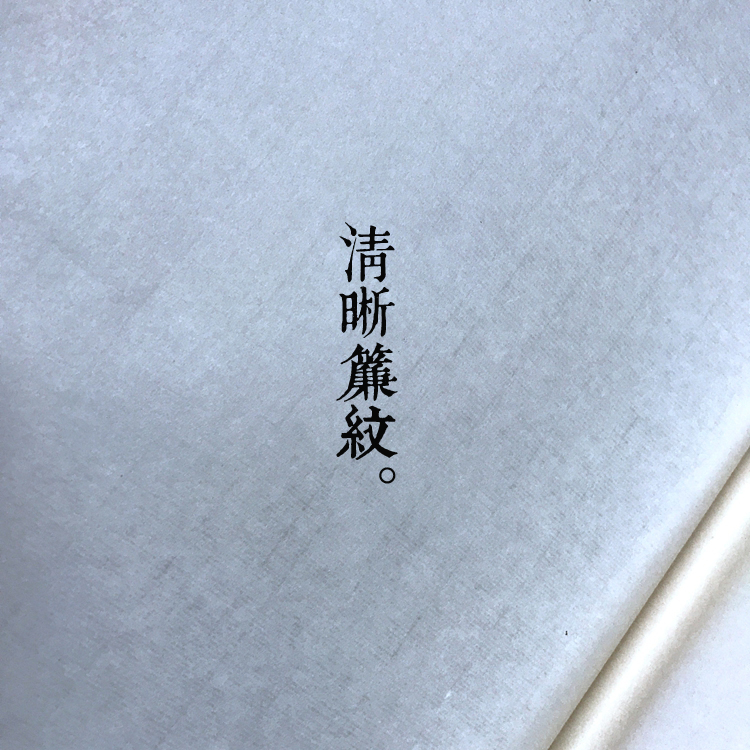 清晰簾紋。